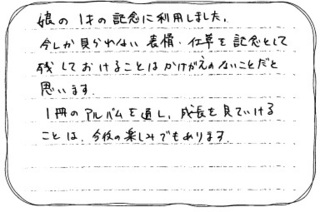 娘の1才の記念に利用しました。
今しか見られない表情・仕草を記念として
残しておけることはかけがえのないことだと
思います。
1冊のアルバムを通し、成長を見ていける
ことは、今後の楽しみでもあります。